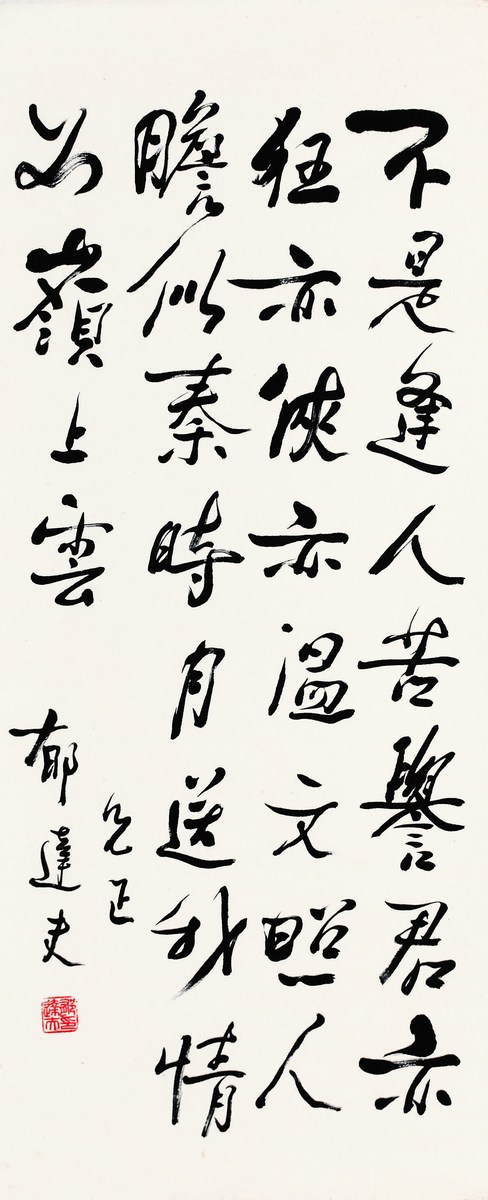 不是逢人苦譽君亦
狂亦俠亦温文照人
膽似秦時月送我情
如嶺上雲
兄正
郁達夫